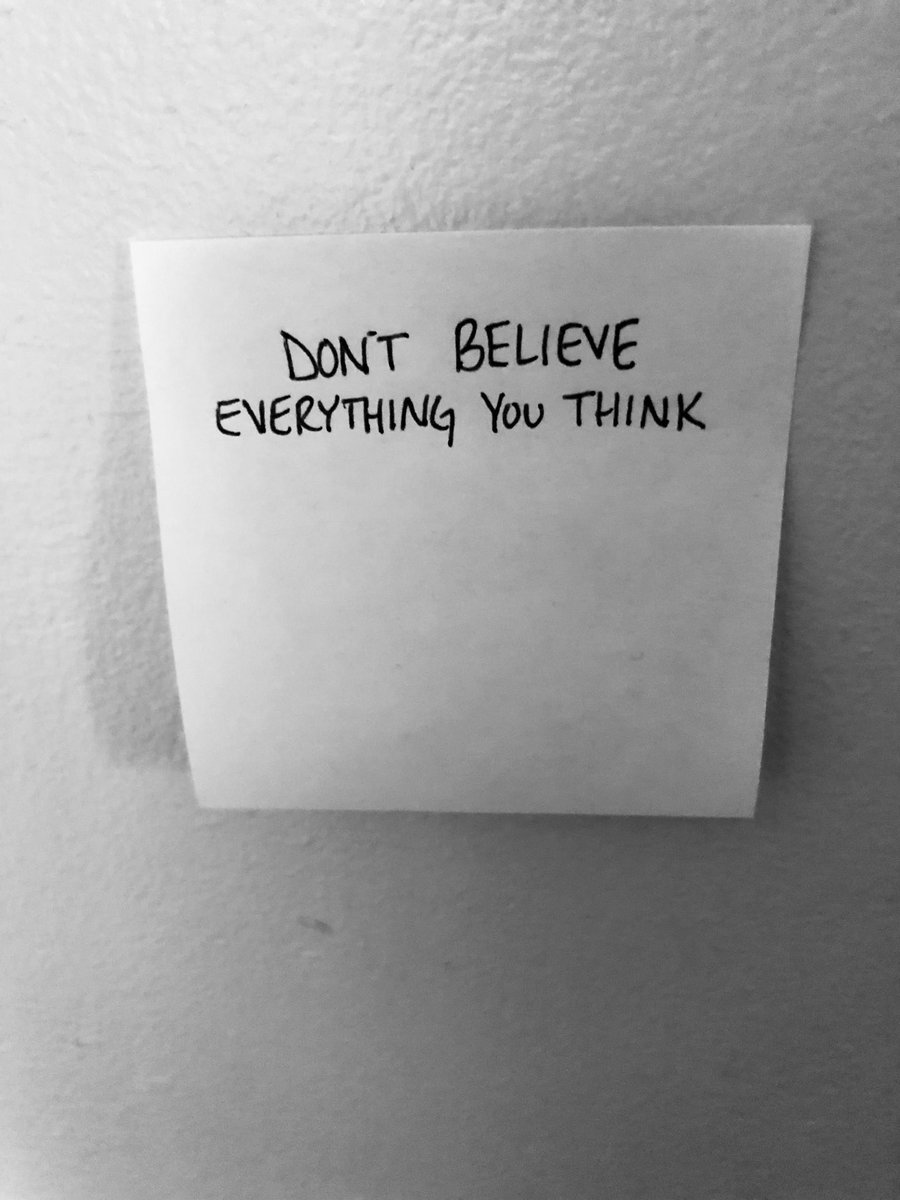 DON'T BELIEVE
EVERYTHING YOU THINK